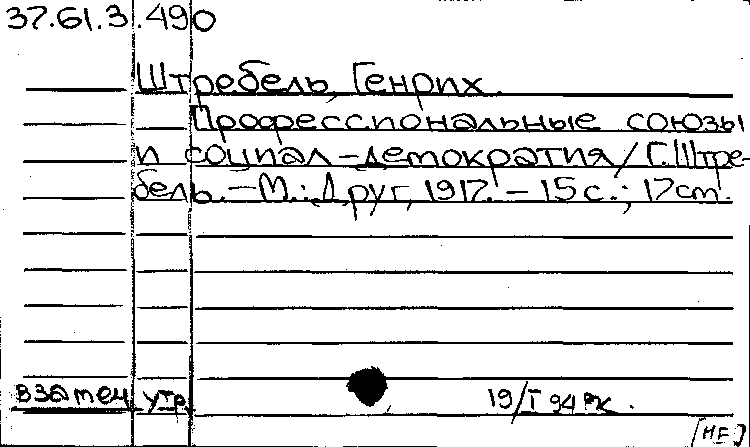 37.61.3.490
Штребель, Генрих.
Профессиональные союзы
и социал-демократия / Г. Штре-
бель. – М.: Друг, 1917. – 15 с.; 17 cm.
взамен утр. 19/I 94
[НЕ]